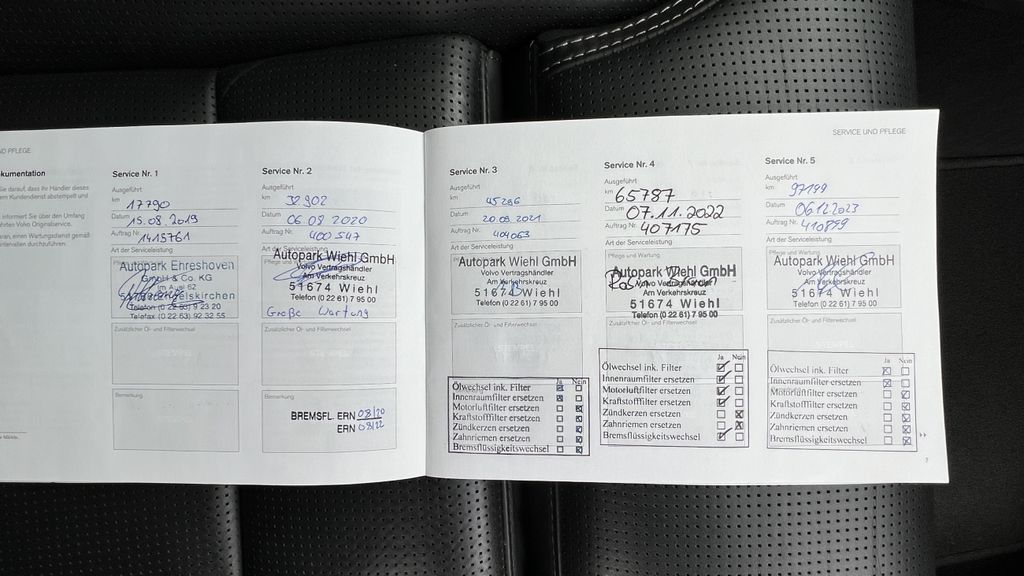 ND PFLEGE
SERVICE UND PFLEGE
kumentation
Sie darauf, dass Ihr Händler dieses
em Kundendienst abstempelt und
informiert Sie über den Umfang
hrten Volvo Originalservice.
ran, einen Wartungsdienst gemäß
ntervallen durchzuführen.
Service Nr. 1
Ausgeführt
km 17790
Datum 15.08.2019
Auftrag Nr. 1415761
Art der Serviceleistung
Autopark Ehreshoven
GmbH & Co. KG
Telefon (0 22 63) 9 23 20
Telefax (0 22 63) 92 32 55
Zusätzlicher Öl- und Filterwechsel
Bemerkung
Service Nr. 2
Ausgeführt
km 32902
Datum 06.08.2020
Auftrag Nr. 400547
Art der Serviceleistung
Autopark Wiehl GmbH
Volvo Vertragshändler
Am Verkehrskreuz
51674 Wiehl
Telefon (0 22 61) 7 95 00
Große Wartung
Zusätzlicher Öl- und Filterwechsel
Bemerkung
BREMSFL. ERN 08/20
ERN 08/22
Service Nr. 3
Ausgeführt
km 45286
Datum 20.09.2021
Auftrag Nr. 404063
Art der Serviceleistung
Autopark Wiehl GmbH
Volvo Vertragshändler
Am Verkehrskreuz
51674 Wiehl
Telefon (0 22 61) 7 95 00
Zusätzlicher Öl- und Filterwechsel
Ja Nein
Ölwechsel ink. Filter
Innenraumfilter ersetzen
Motorluftfilter ersetzen
Kraftstofffilter ersetzen
Zündkerzen ersetzen
Zahnriemen ersetzen
Bremsflüssigkeitswechsel
Service Nr. 4
Ausgeführt
km 65787
Datum 07.11.2022
Auftrag Nr. 407175
Art der Serviceleistung
Autopark Wiehl GmbH
Volvo Vertragshändler
Am Verkehrskreuz
51674 Wiehl
Telefon (0 22 61) 7 95 00
Ja Nein
Ölwechsel ink. Filter
Innenraumfilter ersetzen
Motorluftfilter ersetzen
Kraftstofffilter ersetzen
Zündkerzen ersetzen
Zahnriemen ersetzen
Bremsflüssigkeitswechsel
Service Nr. 5
Ausgeführt
km 97199
Datum 06.12.2023
Auftrag Nr. 410899
Art der Serviceleistung
Pflege und Wartung
Autopark Wiehl GmbH
Volvo Vertragshändler
Am Verkehrskreuz
51674 Wiehl
Telefon (0 22 61) 7 95 00
Zusätzlicher Öl- und Filterwechsel
Ja Nein
Ölwechsel ink. Filter
Innenraumfilter ersetzen
Motorluftfilter ersetzen
Kraftstofffilter ersetzen
Zündkerzen ersetzen
Zahnriemen ersetzen
Bremsflüssigkeitswechsel
7